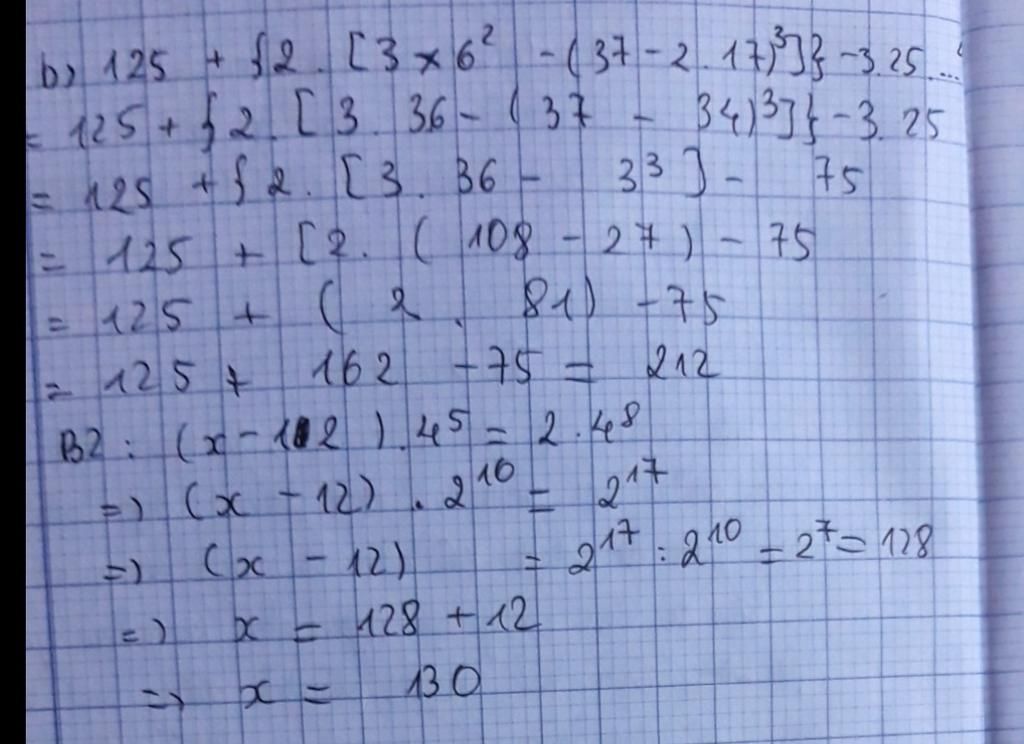 b) 125 + {2 . [3 × 6² - (37 - 2 . 17)³]} - 3.25 ...
= 125 + {2 . [3 . 36 - (37 - 34)³]} - 3.25
= 125 + {2 . [3 . 36 - 3³] - 75
= 125 + [2 . (108 - 27) - 75
= 125 + (2 . 81) - 75
= 125 + 162 - 75 = 212
B2 : (x - 12) . 4⁵ = 2 . 4⁸
=> (x - 12) . 2¹⁰ = 2¹⁷
=> (x - 12) = 2¹⁷ : 2¹⁰ = 2⁷ = 128
=> x = 128 + 12
=> x = 130